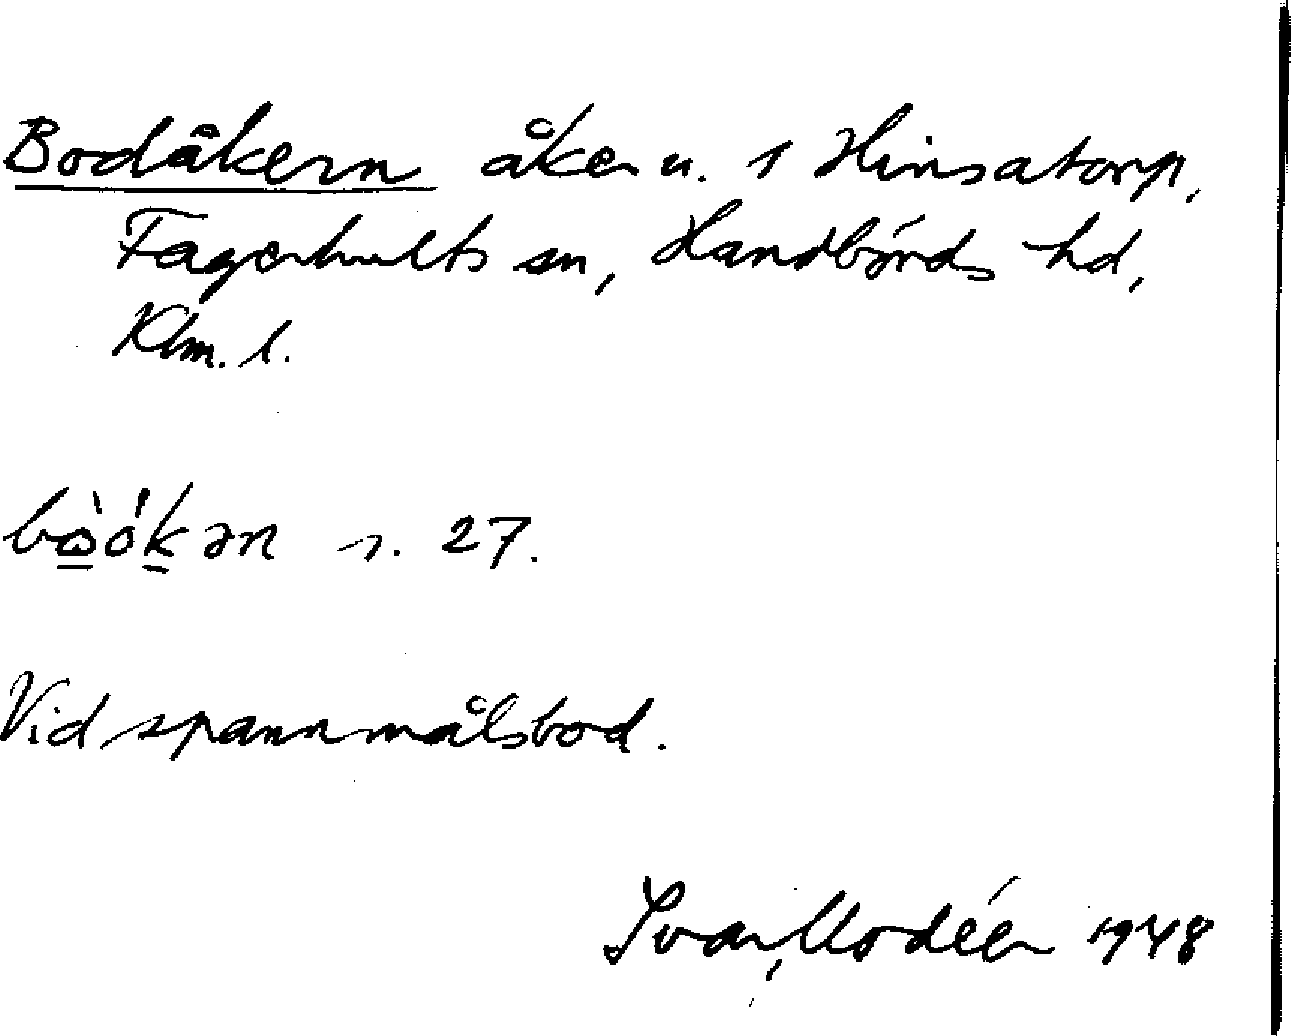 Bodåkern åker u. 1 Hinsatorp,
Fagerhults sn, Handbörds hd,
Klm. l.
s. 27.
Vid spannmålsbod.
Ivar Modéer 1948